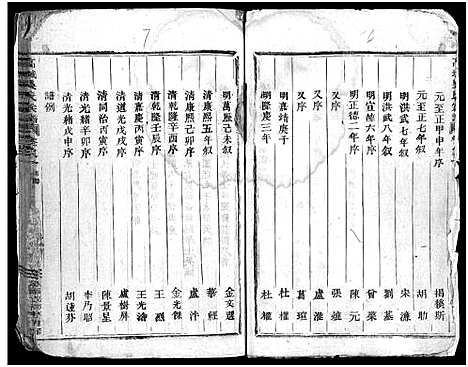 元至正甲申年序 揭傒斯
元至正七年叙 胡助
明洪武七年叙 宋濂
明洪武八年叙 劉基
明宣德六年序 曾棨
明正德二年序 陳元
又序 張進
又序 盧濰
又序 葛瑄
明嘉靖庚子 杜權
明隆慶三年 杜權
明萬曆己未叙 金文選
清康熙五年叙 華經
清康熙己卯序 盧泮
清乾隆辛酉序 金光傑
清乾隆壬辰序 王烈
清嘉慶丙寅序 王光瀚
清道光戊戌序 盧樹屏
清同治丙寅序 陳景星
清光緒辛卯序 李乃昭
清光緒戊申序 胡蓮芬
譜例